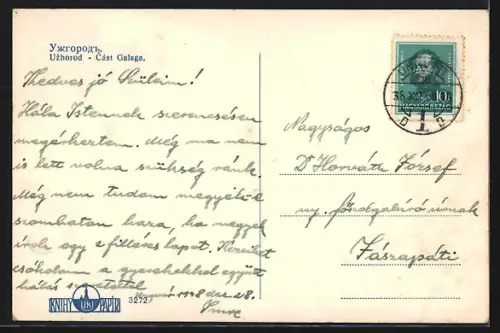 Ужгородъ.
Užhorod - Část Galaga.
Kedves jó Szüleim!
Hála Istennek szerencsésen
megérkeztem. Még ma nem
is lett volna szükség ránk.
Még nem tudom megyek-e
szombaton haza, ha megyek
írok egy filléres lapot. Kézeiket
csókolom a gyerekekkel együtt
hálás szeretettel
1938 dec 28.
Imre
KNIHY UKL PAPÍR
3272
MAGYARORSZÁG
10
1
D D
Nagyságos
Dr Horváth József
ny. főszolgabíró úrnak
Jászapáti